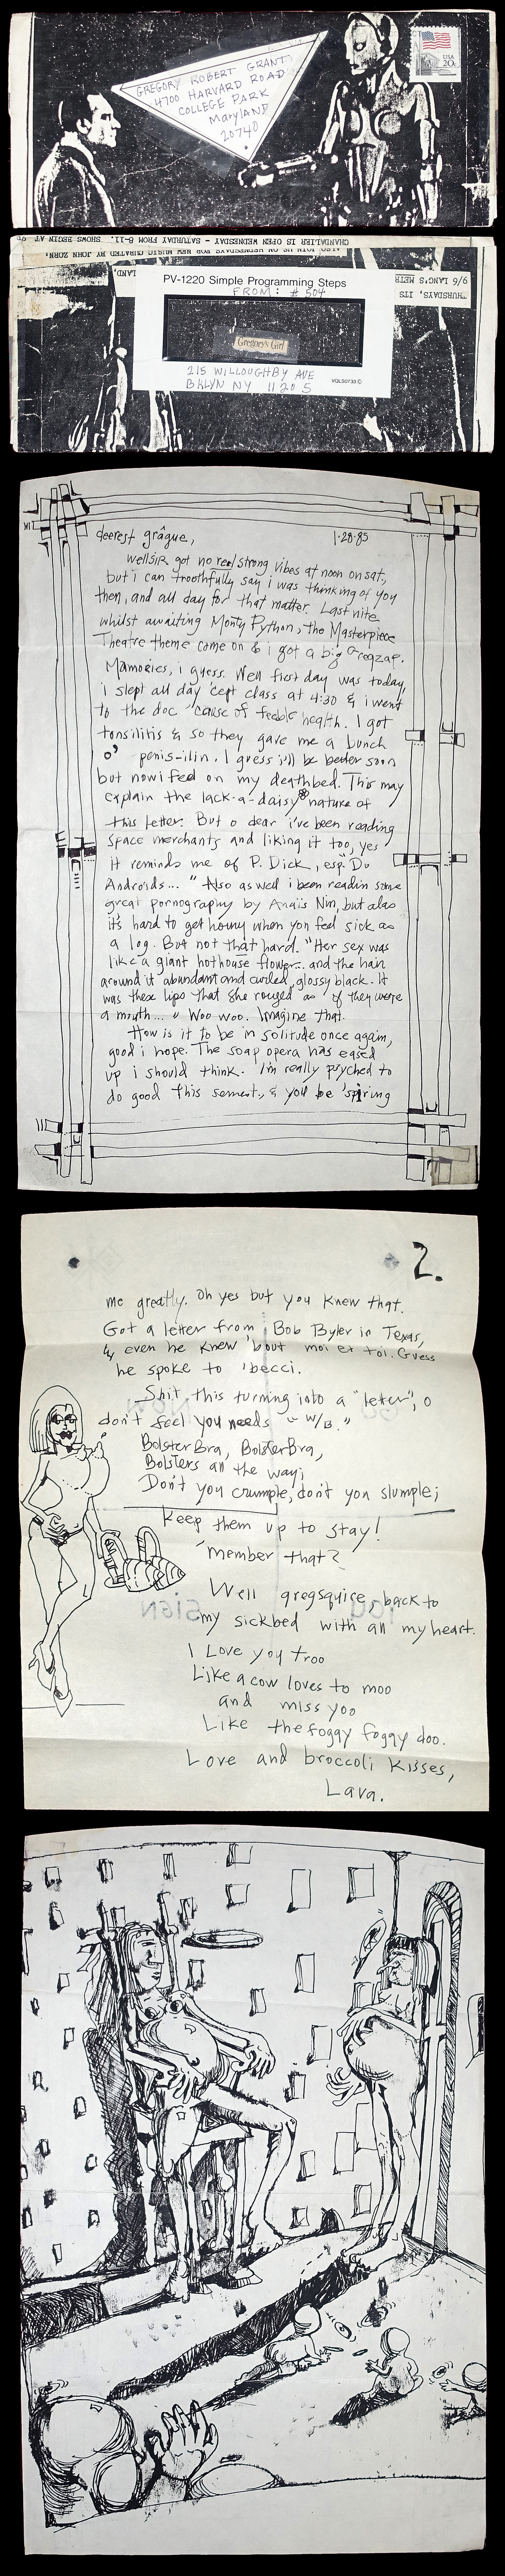 GREGORY ROBERT GRANT
4700 HARVARD ROAD
COLLEGE PARK
Maryland
20740
USA
20c
CHANDALIER IS OPEN WEDNESDAY - SATURDAY FROM 8-11. SHOWS BEGIN AT
ALSO JOIN US ON WEDNESDAYS FOR NEW MUSIC CURATED BY JOHN ZORN:
THURSDAYS, ITS
9/6 LANG'S METR
PV-1220 Simple Programming Steps
FROM: #504
Gregory's Girl
215 WILLOUGHBY AVE
BKLYN NY 11205
VQLS0730
deerest grâgue,
1·28·85
wellSIR got no real strong vibes at noon on sat.,
but i can troothfully say i was thinking of you
then, and all day for that matter. Last nite
whilst awaiting Monty Python, the Masterpiece
Theatre theme come on & i got a big Gregzap.
Mamories, i guess. Well first day was today,
i slept all day 'cept class at 4:30 & i went
to the doc 'cause of feeble health. I got
tonsilitis & so they gave me a bunch
o' penis-ilin. I guess i'll be better soon
but now i feel on my deathbed. This may
explain the lack-a-daisy nature of
this letter. But o dear i've been reading
Space merchants and liking it too, yes
it reminds me of P. Dick, esp. "Do
Androids..." Also as well i been readin some
great pornography by Anaïs Nin, but alas
it's hard to get horny when you feel sick as
a log. But not that hard. "Her sex was
like a giant hothouse flower... and the hair
around it abundant and curled, glossy black. It
was these lips that she rouged as if they were
a mouth..." Woo woo. Imagine that.
How is it to be in solitude once again,
good i hope. The soap opera has eased
up i should think. I'm really psyched to
do good this semest., & you'll be 'spiring
2.
me greatly. Oh yes but you knew that.
Got a letter from Bob Byler in Texas,
& even he knew 'bout moi et toi. Guess
he spoke to 'becci.
Shit, this turning into a "leter", o
don't feel you needs "w/B."
BolsterBra, BolsterBra,
Bolsters all the way;
Don't you crumple, don't you slumple;
Keep them up to stay!
'member that?
Well gregsquire, back to
my sickbed with all my heart.
I Love you troo
Like a cow loves to moo
and miss yoo
Like the foggy foggy doo.
Love and broccoli kisses,
Lava.